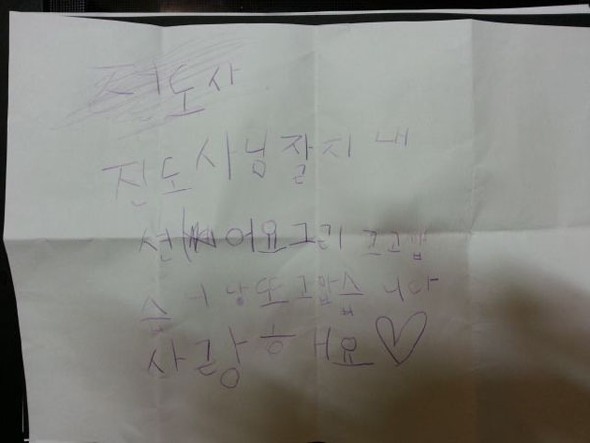 도사
진도사님잘지 내
션 어요그리 고고맙
스니당또고맙습니다
사랑해요♡